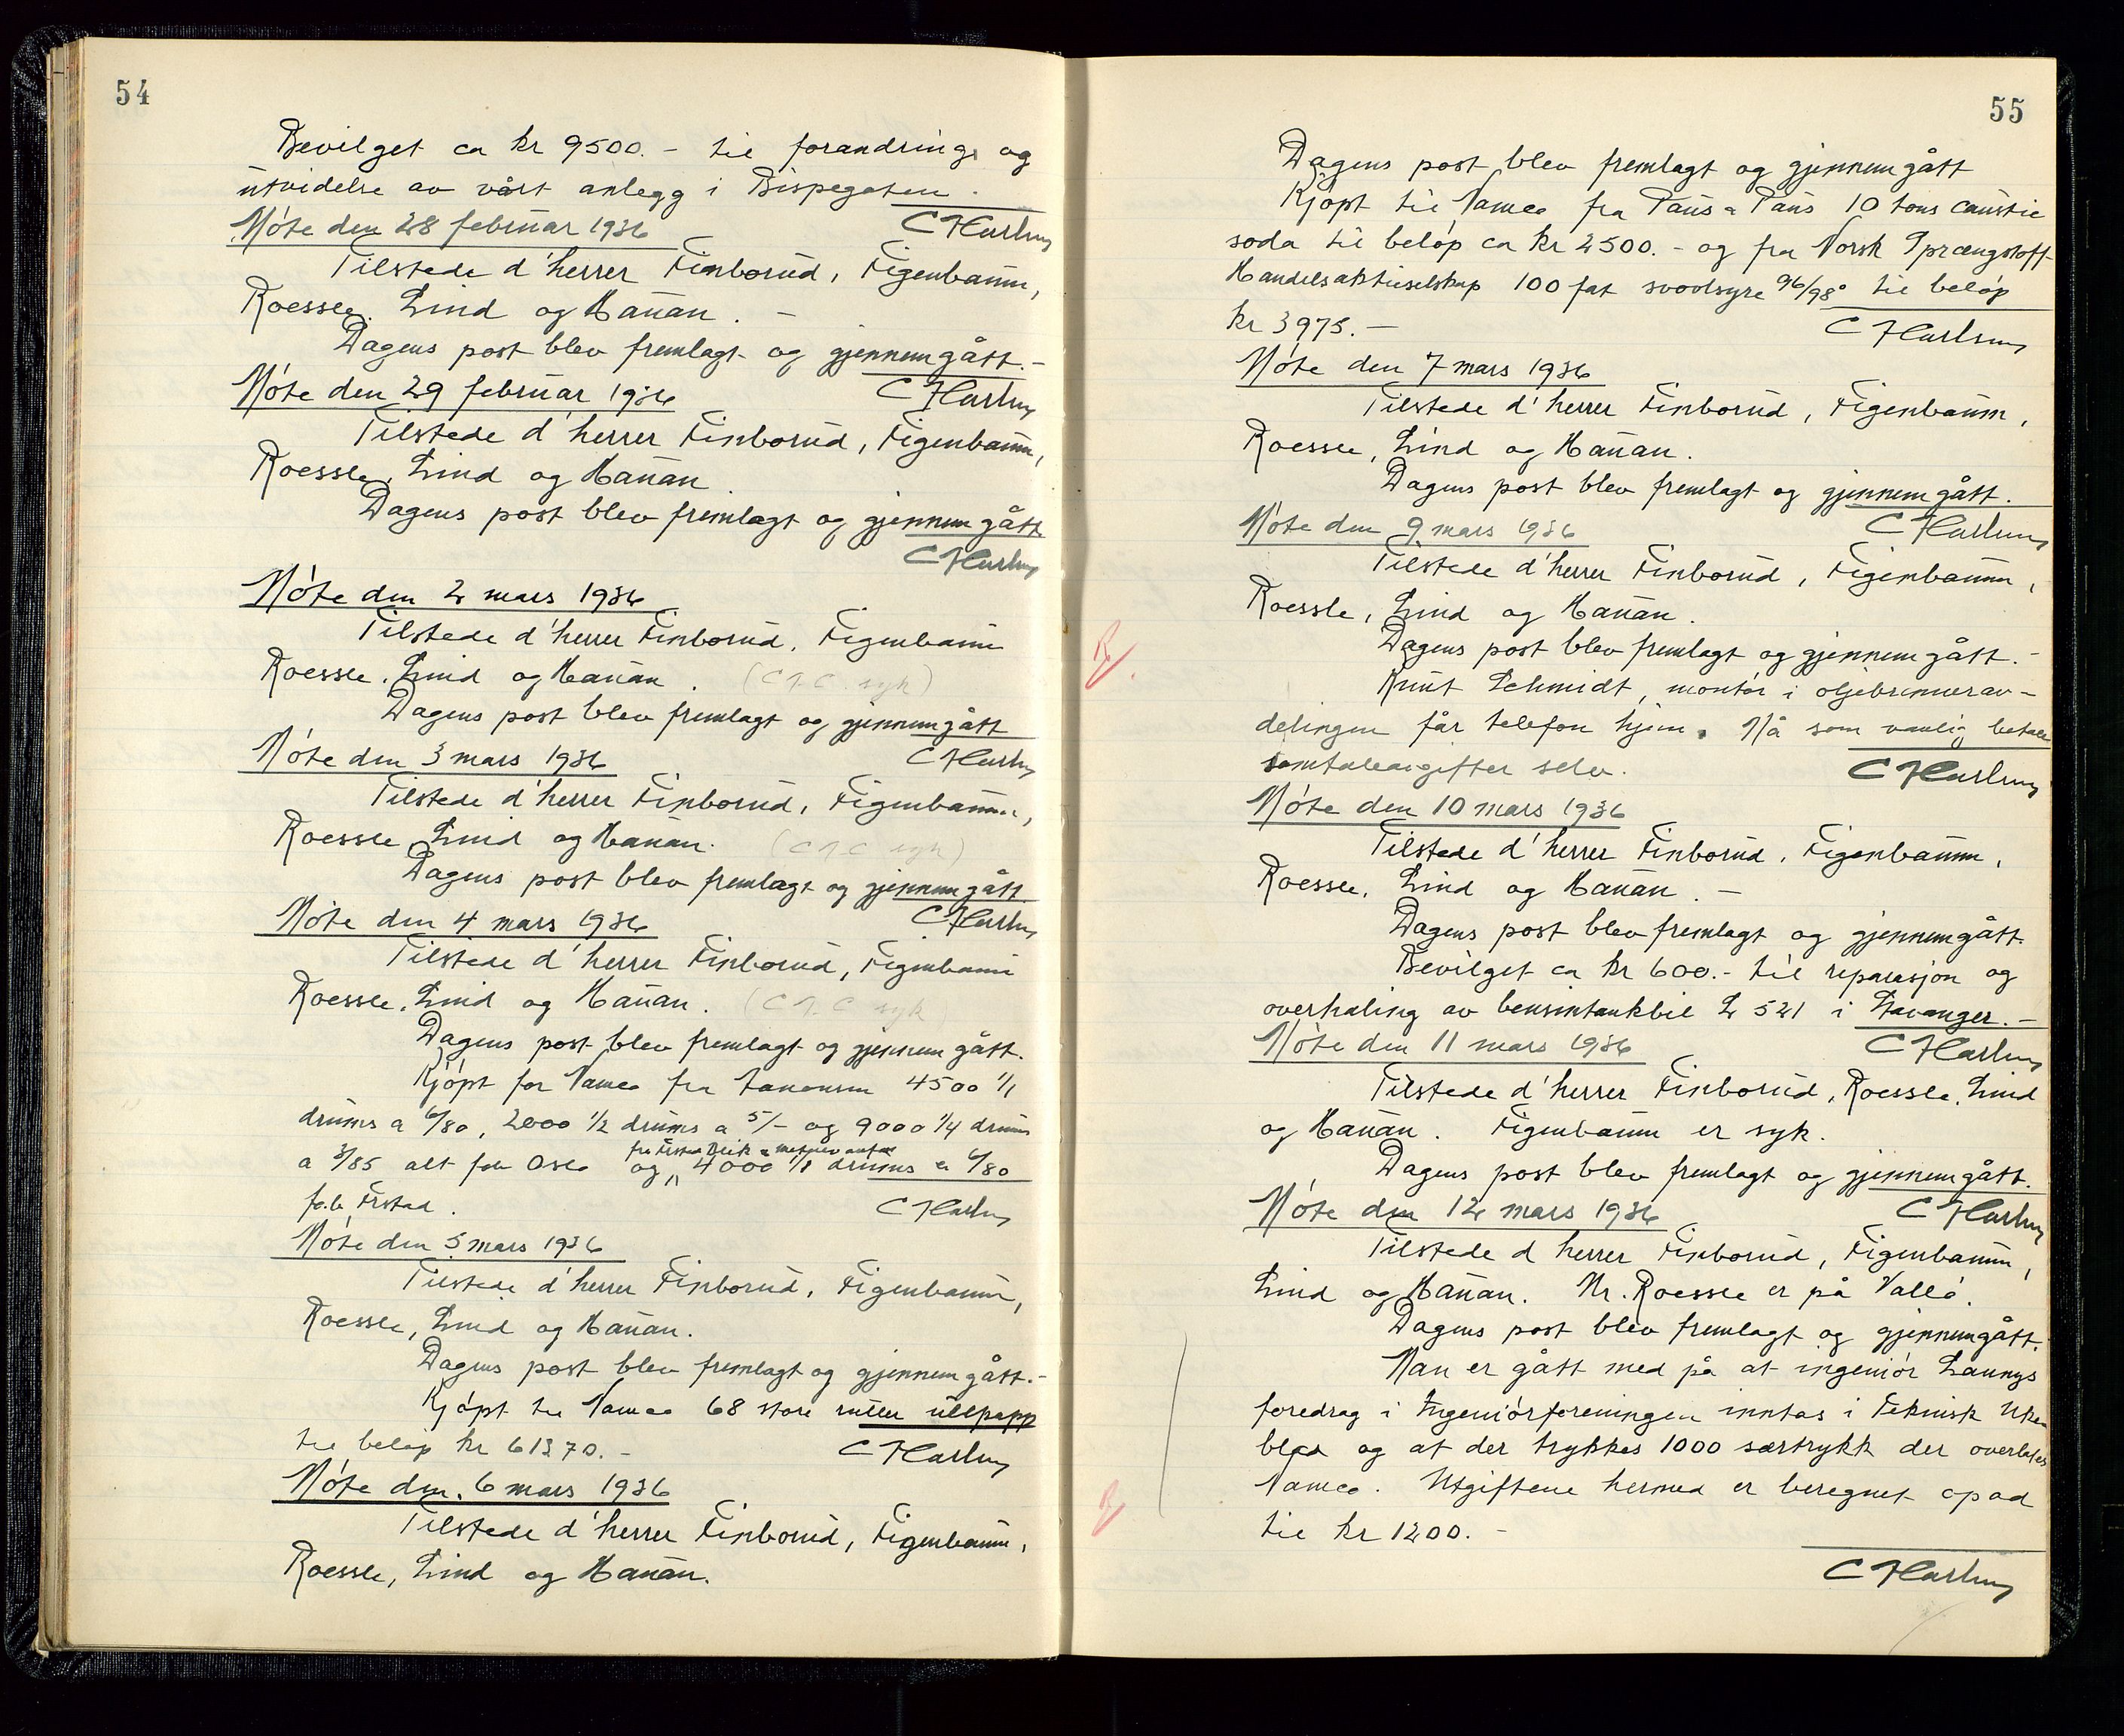 54
Bevilget ca kr 9500.- til forandring og
utvidelse av vårt anlegg i Bispegaten.
Møte den 28 februar 1936
Tilstede d'herrer Finborud, Figenbaum,
Roessle, Lind og Hauan. -
Dagens post blev fremlagt og gjennemgått.-
Møte den 29 februar 1936
Tilstede d'herrer Finborud, Figenbaum,
Roessle, Lind og Hauan
Dagens post blev fremlagt og gjennemgått
Møte den 2 mars 1936
Tilstede d'herrer Finborud, Figenbaum
Roessle, Lind og Hauan. (syk)
Dagens post blev fremlagt og gjennemgått
Møte den 3 mars 1936
Tilstede d'herrer Finborud, Figenbaum,
Roessle, Lind og Hauan. (syk)
Dagens post blev fremlagt og gjennemgått.
Møte den 4 mars 1936
Tilstede d'herrer Finborud, Figenbaum
Roessle, Lind og Hauan. (syk)
Dagens post blev fremlagt og gjennemgått.
Kjøpt for Vamco fra 4500 1/1
drums a 6/80, 2000 1/2 drums a 5/- og 9000 1/4 drums
a 3/85 alt fob Oslo og 4000 1/1 drums a 6/80
fob Frstad.
Møte den 5 mars 1936
Tilstede d'herrer Finborud, Figenbaum,
Roessle, Lind og Hauan.
Dagens post blev fremlagt og gjennemgått.-
Kjøpt til Vamco 68 store ruller ullpapp
til beløp kr 61370.-
Møte den 6 mars 1936
Tilstede d'herrer Finborud, Figenbaum,
Roessle, Lind og Hauan.
55
Dagens post blev fremlagt og gjennemgått
Kjøpt til Vamco fra Paus & Paus 10 tons caustic
soda til beløp ca kr 2500.- og fra Norsk Sprængstoff-
Handelsaktieselskap 100 fat svovlsyre 96/98° til beløp
kr 3975.-
Møte den 7 mars 1936
Tilstede d'herrer Finborud, Figenbaum,
Roessle, Lind og Hauan.
Dagens post blev fremlagt og gjennemgått.
Møte den 9 mars 1936
Tilstede d'herrer Finborud, Figenbaum,
Roessle, Lind og Hauan.
Dagens post blev fremlagt og gjennemgått.-
Knut Schmidt, montør i oljebrennerav-
delingen får telefon hjem. Må som vanlig betale
samtaleavgifter selv.
Møte den 10 mars 1936
Tilstede d'herrer Finborud, Figenbaum,
Roessle, Lind og Hauan. -
Dagens post blev fremlagt og gjennemgått.
Bevilget ca kr 600.- til reparasjon og
overhaling av bensintankbil L 521 i Stavanger.-
Møte den 11 mars 1936
Tilstede d'herrer Finborud, Roessle, Lind
og Hauan. Figenbaum er syk.
Dagens post blev fremlagt og gjennemgått.
Møte den 12 mars 1936
Tilstede d herrer Finborud, Figenbaum,
Lind og Hauan. Hr. Roessle er på Vallø.
Dagens post blev fremlagt og gjennemgått.
Man er gått med på at ingeniør Launys
foredrag i Ingeniørforeningen inntas i Teknisk Uke-
blad og at der trykkes 1000 særtrykk der overlates
Vamco. Utgiftene hermed er beregnet opad
til kr 1200.-